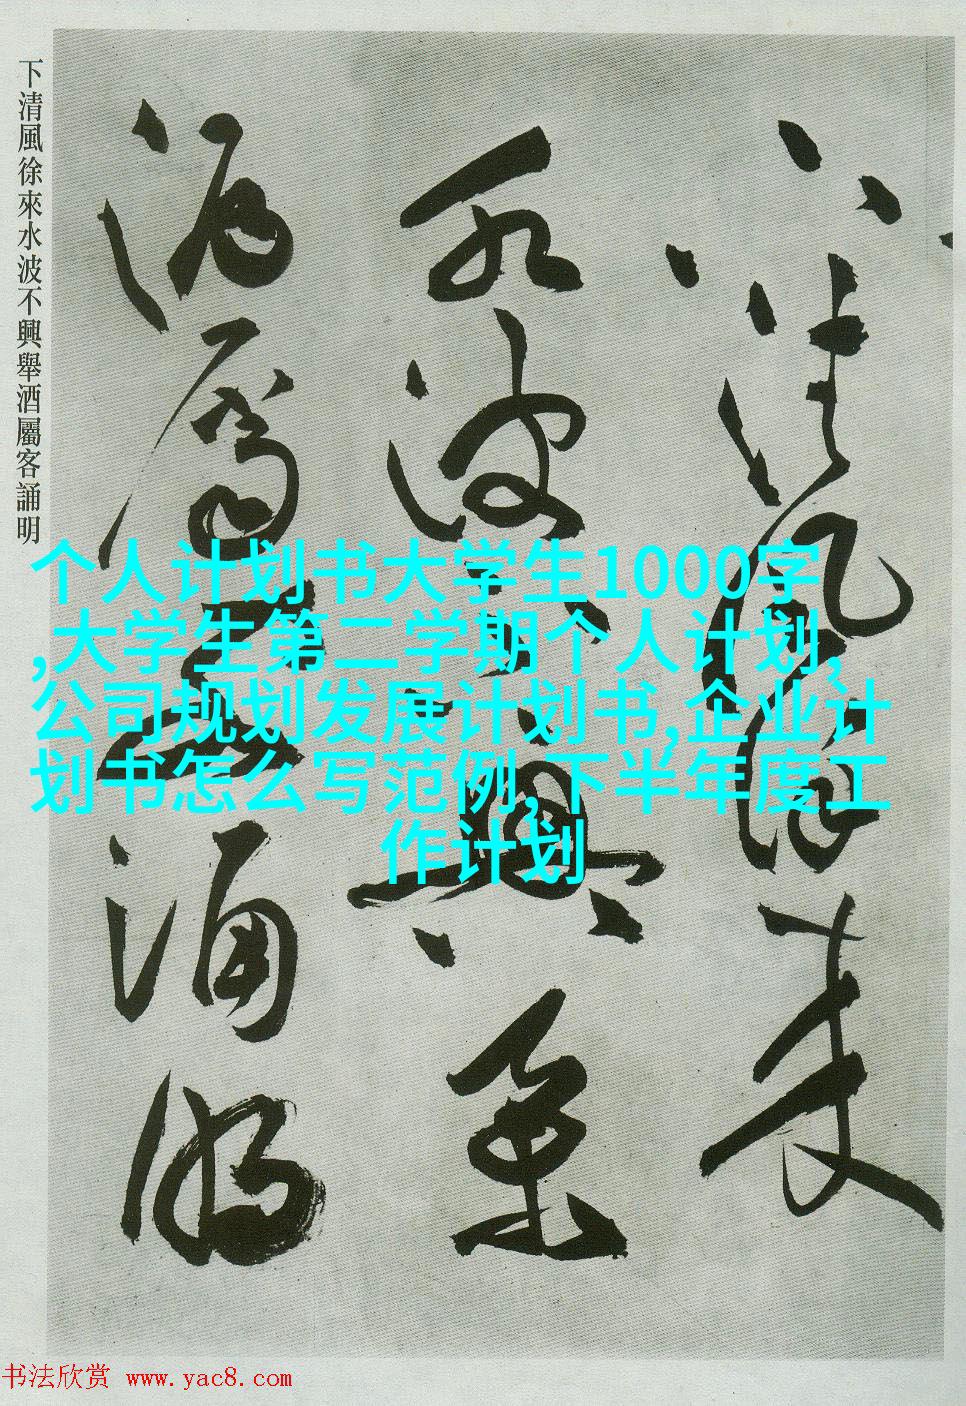 下清風徐來水波不興舉酒屬客誦明
下清風徐來
水波不興舉
酒屬客誦明
个人计划书大学生1000字
,大学生第二学期个人计划,
公司规划发展计划书,企业计
划书怎么写范例,下半年度工
作计划
书法欣赏 www.yac8.com